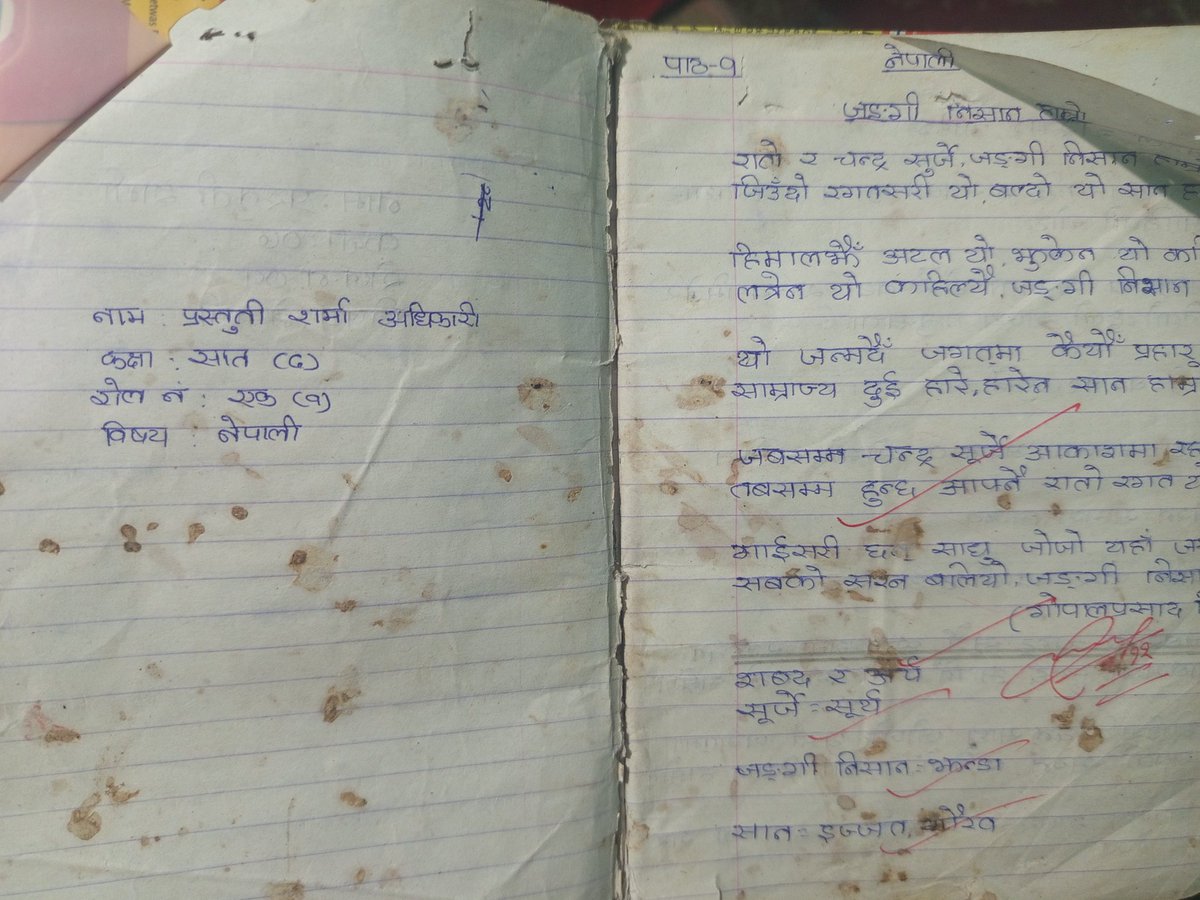 नाम : प्रस्तुती शर्मा अधिकारी
कक्षा : सात (७)
रोल नं : एक (१)
विषय : नेपाली
पाठ-१
नेपाली
जङ्गी निसान हाम्रो
रातो र चन्द्र सुर्जे, जङ्गी निसान
जिउँदो रगतसरी यो, बल्दो यो सान
हिमालझैँ अटल यो, झुकेन यो
लत्रेन यो कहिल्यै, जङ्गी निसान
यो जन्मदैँ जगत्‌मा कैयौँ प्रहार
साम्राज्य दुई हारे, हारेन सान
जबसम्म चन्द्र सूर्जे आकाशमा
तबसम्म हुन्छ आफ्नै रातो रगत
गाईसरी छन् साधु जोजो यहाँ
सबको सरन बलियो, जङ्गी
(गोपालप्रसाद
शब्द र अर्थ
सूर्जे = सूर्य
जङ्गी निसान = झन्डा
सान = इज्जत, गौरव